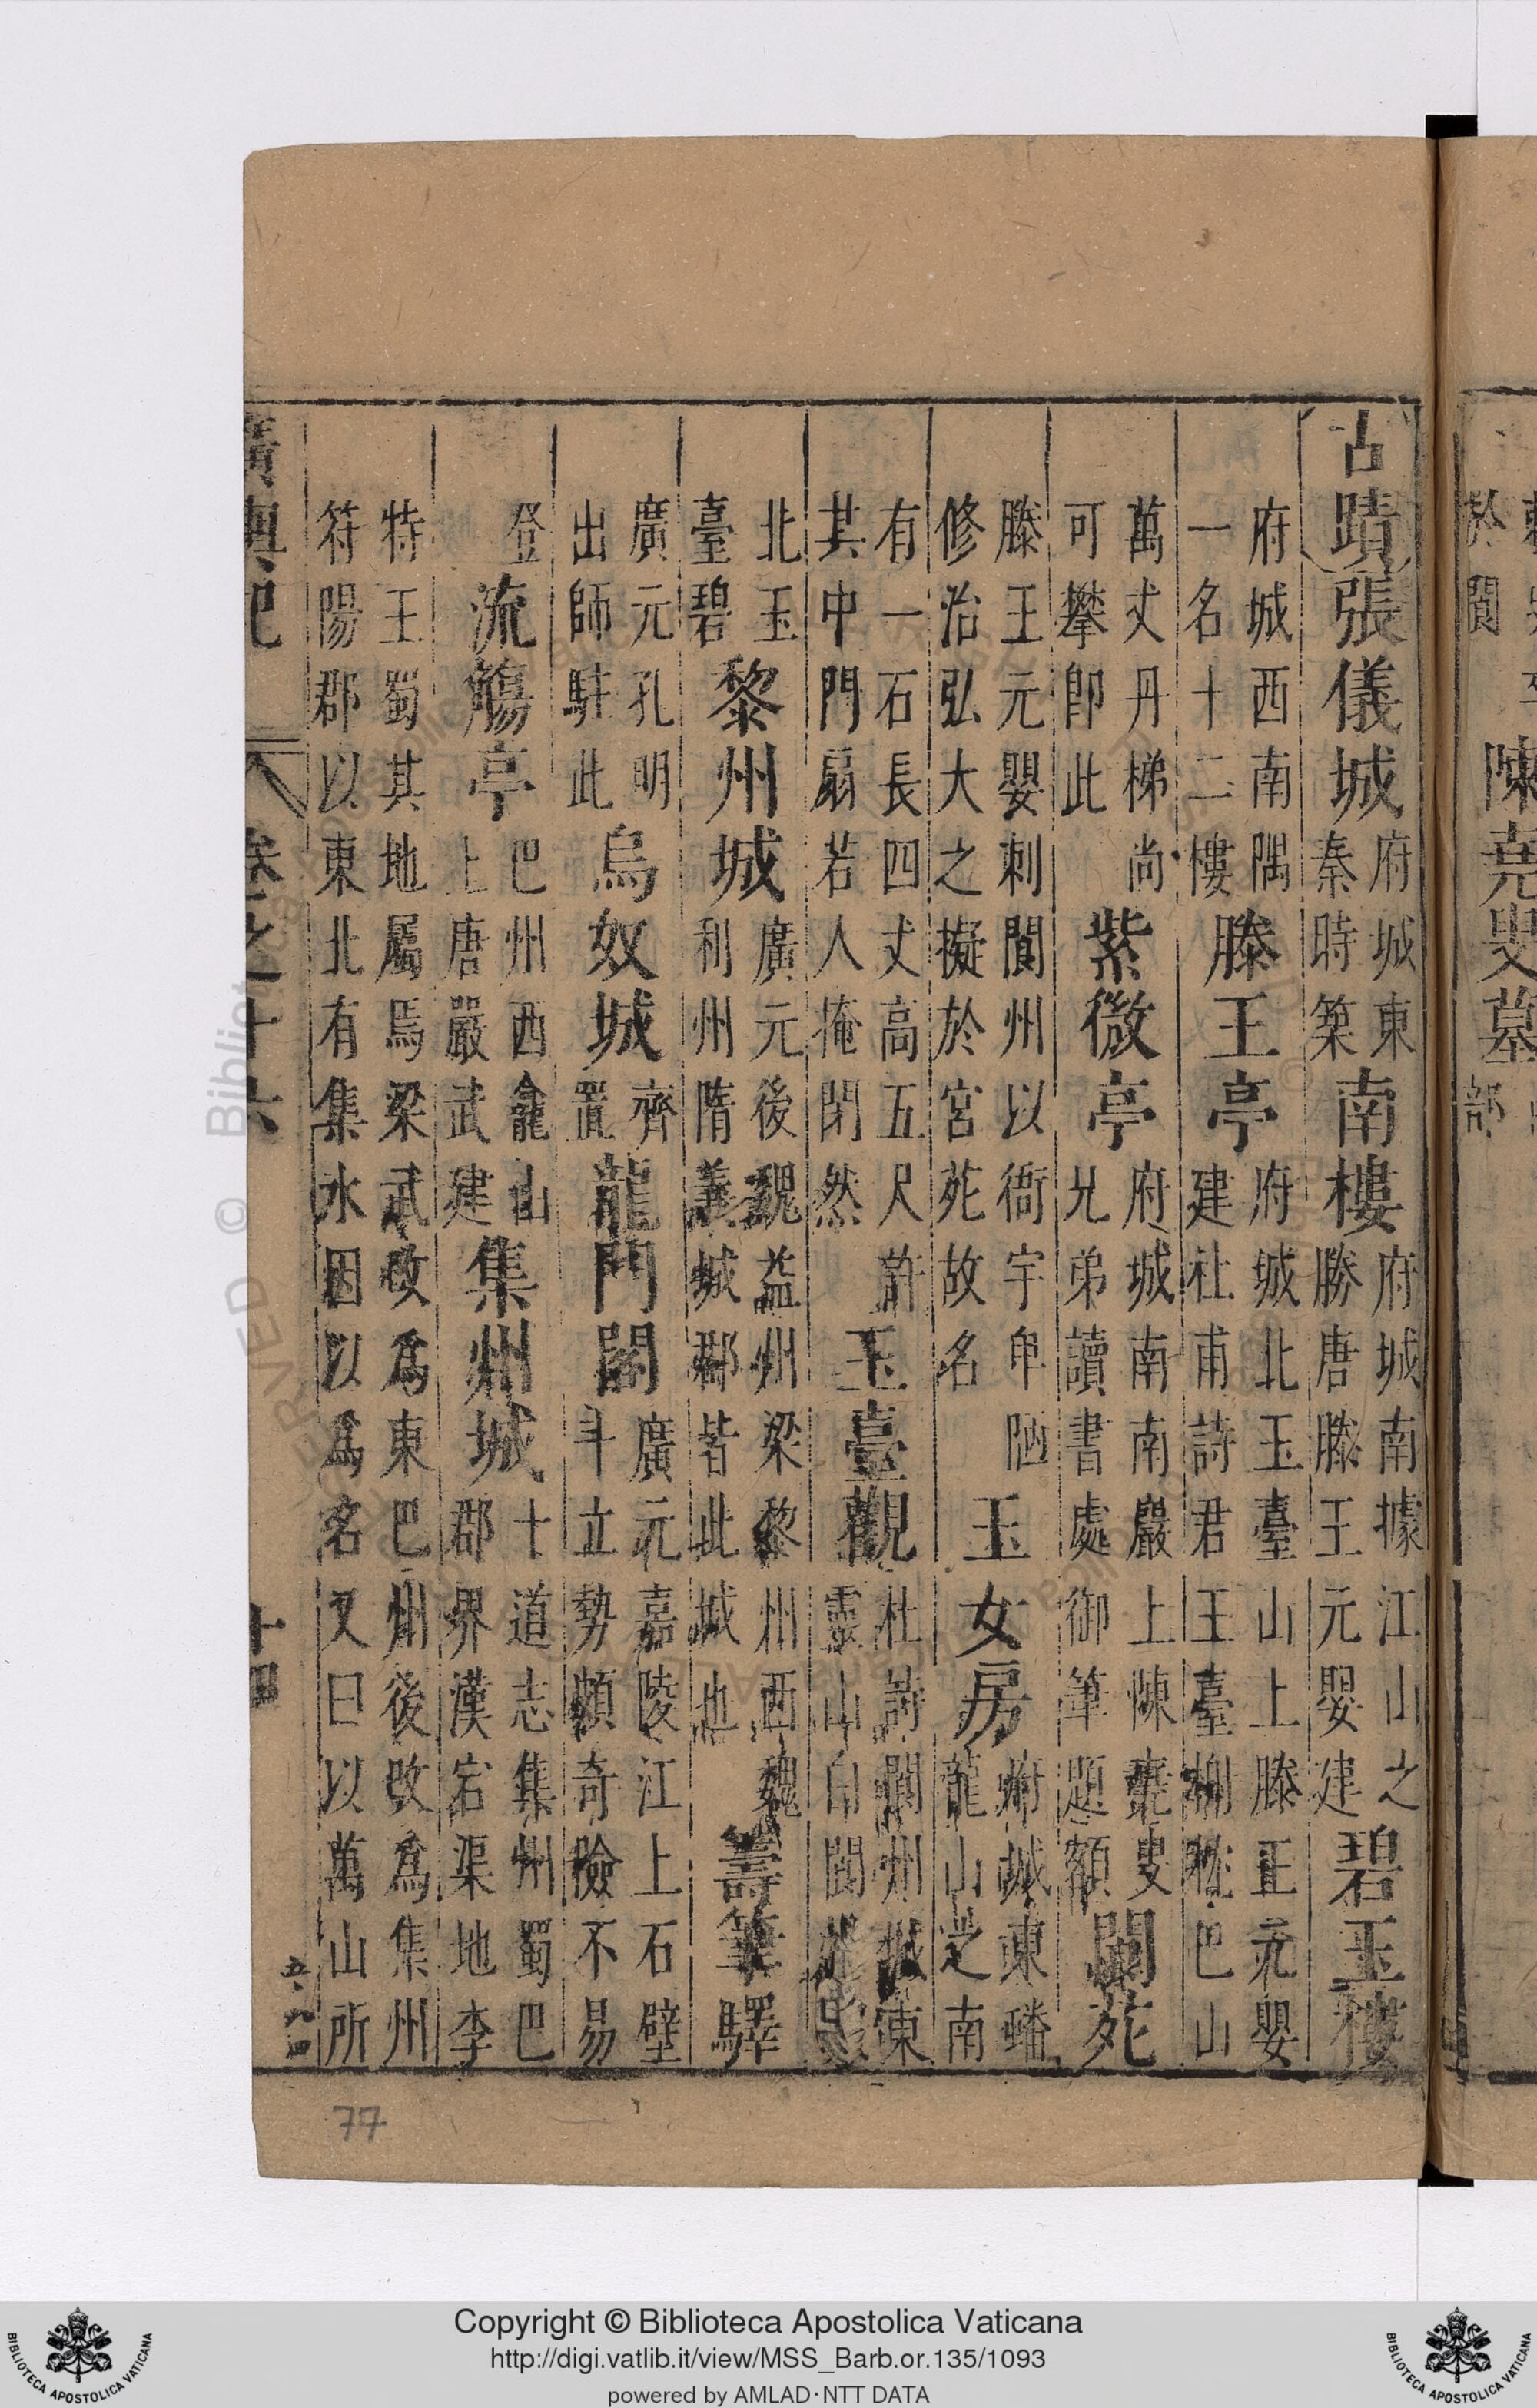 陳堯叟墓
古蹟 張儀城 府城東秦時築 南樓 府城南據江山之勝唐滕王元嬰建 碧玉樓
府城西南隅一名十二樓 滕王亭 府城北玉臺山上滕王元嬰建杜甫詩君王臺榭枕巴山
萬丈丹梯尚可攀卽此 紫微亭 府城南南巖上陳堯叟兄弟讀書處御筆題額 閬苑
滕王元嬰刺閬州以衙宇卑陋修治弘大之擬於宮苑故名 玉女房 府城東蟠龍山之南
有一石長四丈高五尺許其中門扇若人掩閉然 玉臺觀 杜詩閬州城東靈山白閬
北玉臺碧 黎州城 廣元後魏益州梁黎州西魏利州隋義城郡皆此城也 籌筆驛
廣元孔明出師駐此 烏奴城 齊置 龍門閣 廣元嘉陵江上石壁斗立勢頗奇險不易
登 流觴亭 巴州西龕山上唐嚴武建 集州城 十道志集州蜀巴郡界漢宕渠地李
特王蜀其地屬焉梁武改爲東巴州後改爲集州符陽郡以東北有集水因以爲名又曰以萬山所
廣輿記 卷之十六 十四
77
Copyright © Biblioteca Apostolica Vaticana
http://digi.vatlib.it/view/MSS_Barb.or.135/1093
powered by AMLAD·NTT DATA